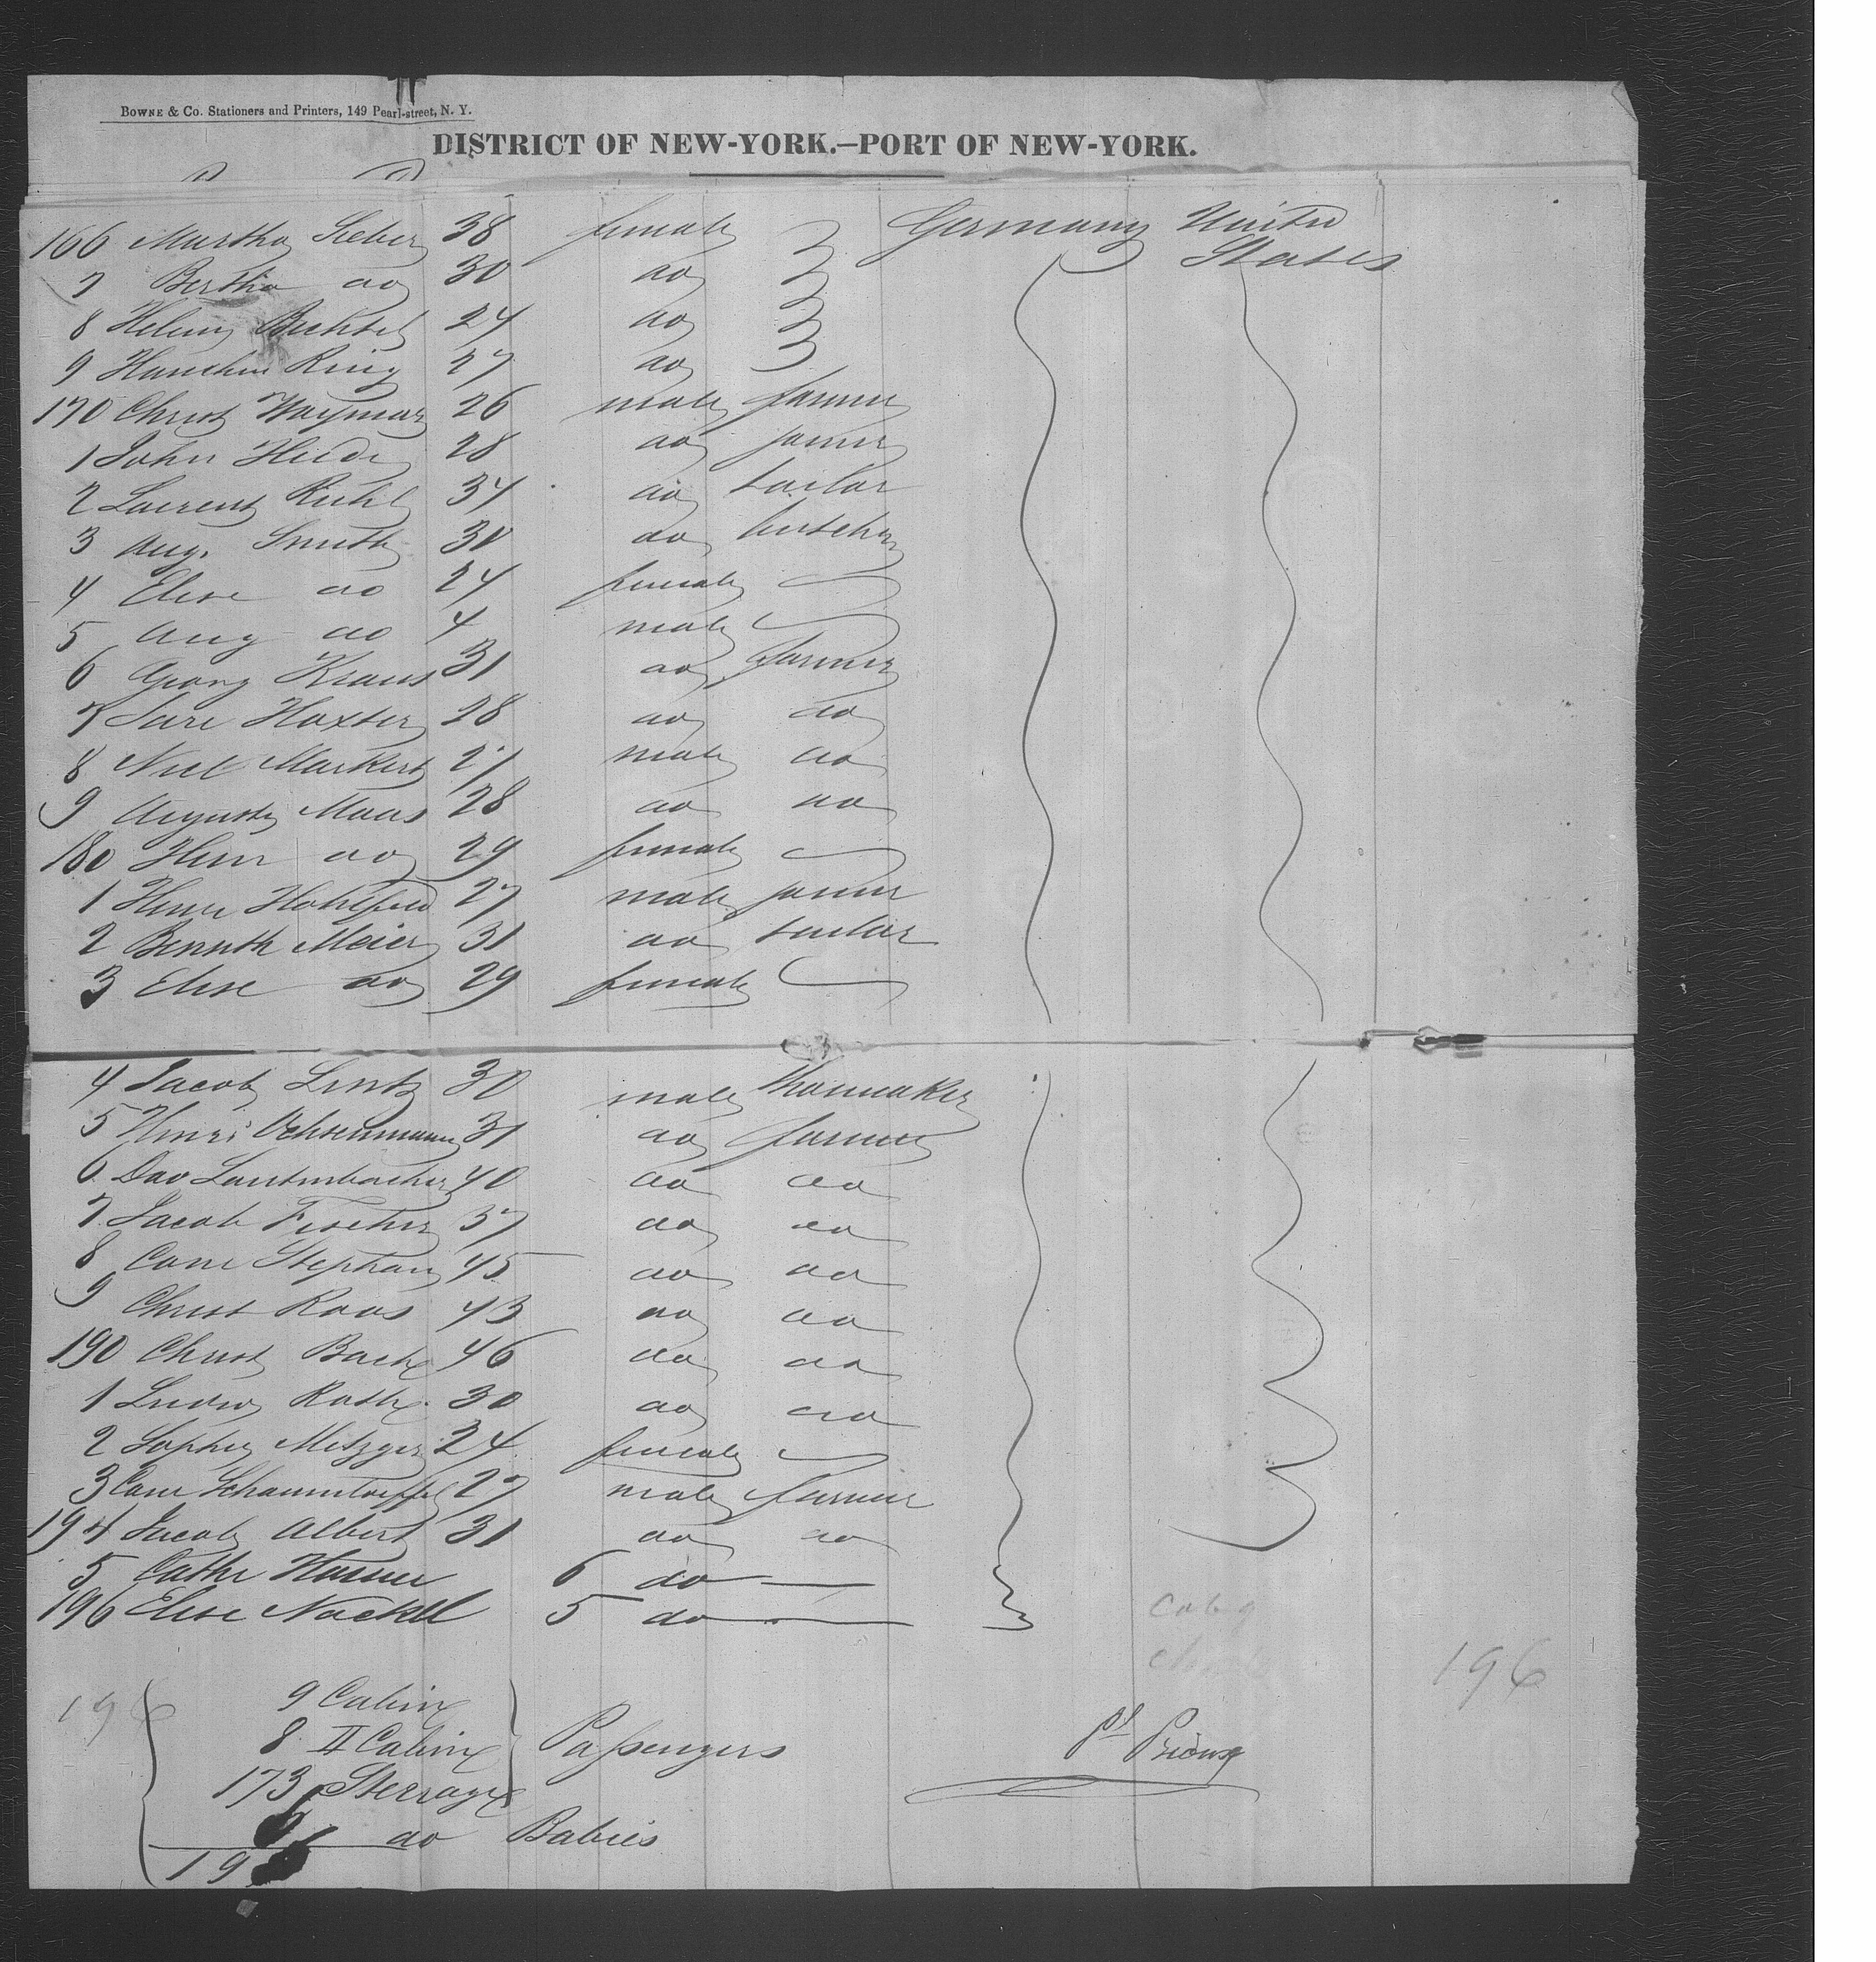 BOWNE & Co. Stationers and Printers, 149 Pearl-street, N. Y.
DISTRICT OF NEW-YORK.—PORT OF NEW-YORK.
166 Martha Sieber 38 female Germany United States
7 Bertha do 30 do
8 Helene Bechtel 24 do
9 Hanchen Ring 27 do
170 Christ Waymar 26 male farmer
1 John Heide 28 do joiner
2 Laurent Kuhl 34 do tailor
3 Aug. Smith 30 do butcher
4 Elise do 24 female
5 Aug do 4 male
6 Georg Kraus 31 do farmer
7 Hoxter 28 do do
8 Markert 27 male do
9 Auguste Maas 28 do do
180 Henr do 29 female
1 Henri Hohlfeld 27 male joiner
2 Bennuth Meier 31 do tailor
3 Elise do 29 female
4 Jacob Lentz 30 male shoemaker
5 Henri Ochsenmann 31 do farmer
6 Dav Lautenbacher 40 do do
7 Jacob Fischer 37 do do
8 Conr Stephan 45 do do
9 Christ Roos 43 do do
190 Christ Bach 46 do do
1 Ludw Roth 30 do do
2 Sophie Metzger 24 female
3 Conr 27 male farmer
194 Jacob Albert 31 do do
5 Cathr 6 do —
196 Elise Nackel 5 do —
196
196 9 Cabin
8 II Cabin Passengers
173 Sterrage
6 do Babies